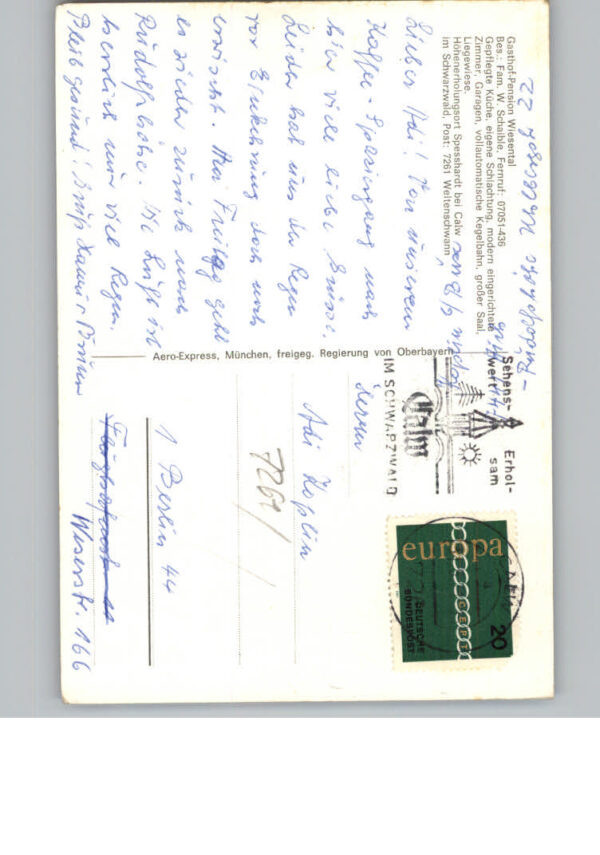 Gasthof-Pension Wiesental
Bes.: Fam. W. Schaible, Fernruf: 07051-436
Gepflegte Küche, eigene Schlachtung, modern eingerichtete
Zimmer, Garagen, vollautomatische Kegelbahn, großer Saal,
Liegewiese.
Höhenerholungsort Spesshardt bei Calw
im Schwarzwald, Post: 7261 Weltenschwann
Lieber Adi! Von unserem
Kaffee-Spaziergang nach
hier viele liebe Grüsse.
Leider hat uns der Regen
vor Einkehrung doch noch
erwischt. Am Freitag geht
es wieder zurück nach
Rudolfshöhe. Die Luft ist
herrlich nur viel Regen.
Bleib gesund!
Aero-Express, München, freigeg. Regierung von Oberbayern
Sehens-
wert
Erhol-
sam
Calw
IM SCHWARZWALD
europa
CEPT
20
DEUTSCHE
BUNDESPOST
Herrn
Adi Koplin
7261
1 Berlin 44
Weserstr. 166